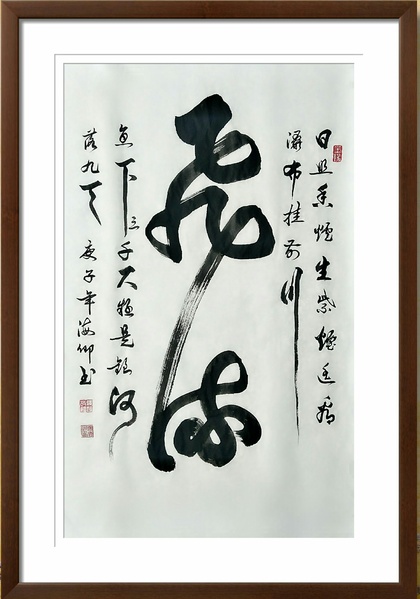 日照香爐生紫煙遥看
瀑布挂前川
飛流
直下三千尺疑是銀河
落九天 庚子年海仰书